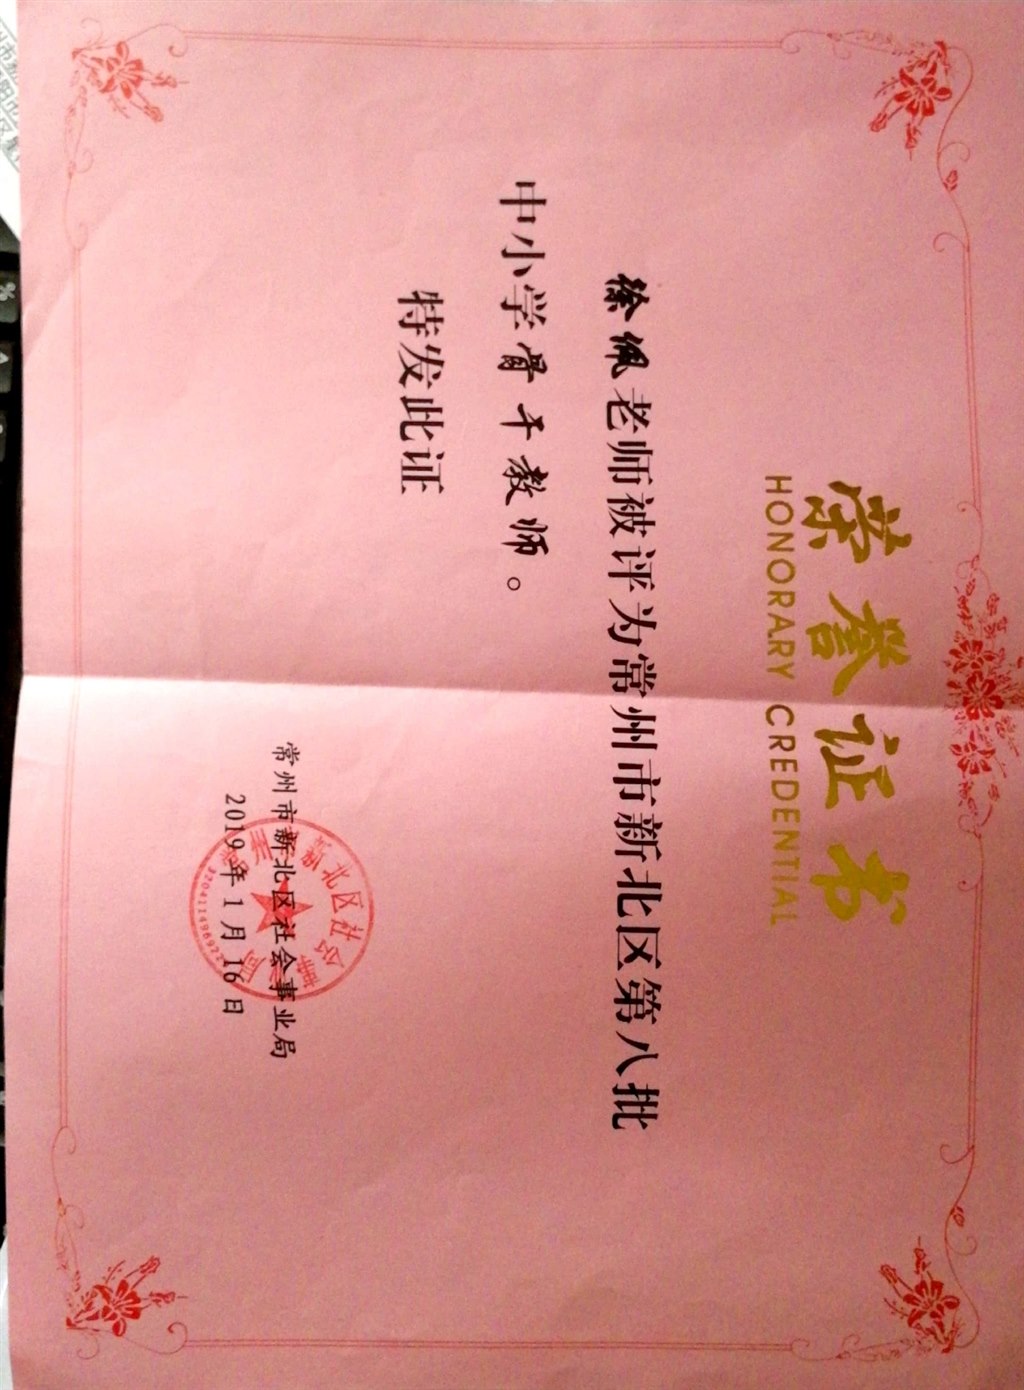 荣誉证书
HONORARY CREDENTIAL
徐佩老师被评为常州市新北区第八批
中小学骨干教师。
特发此证
常州市新北区社会事业局
2019年1月16日